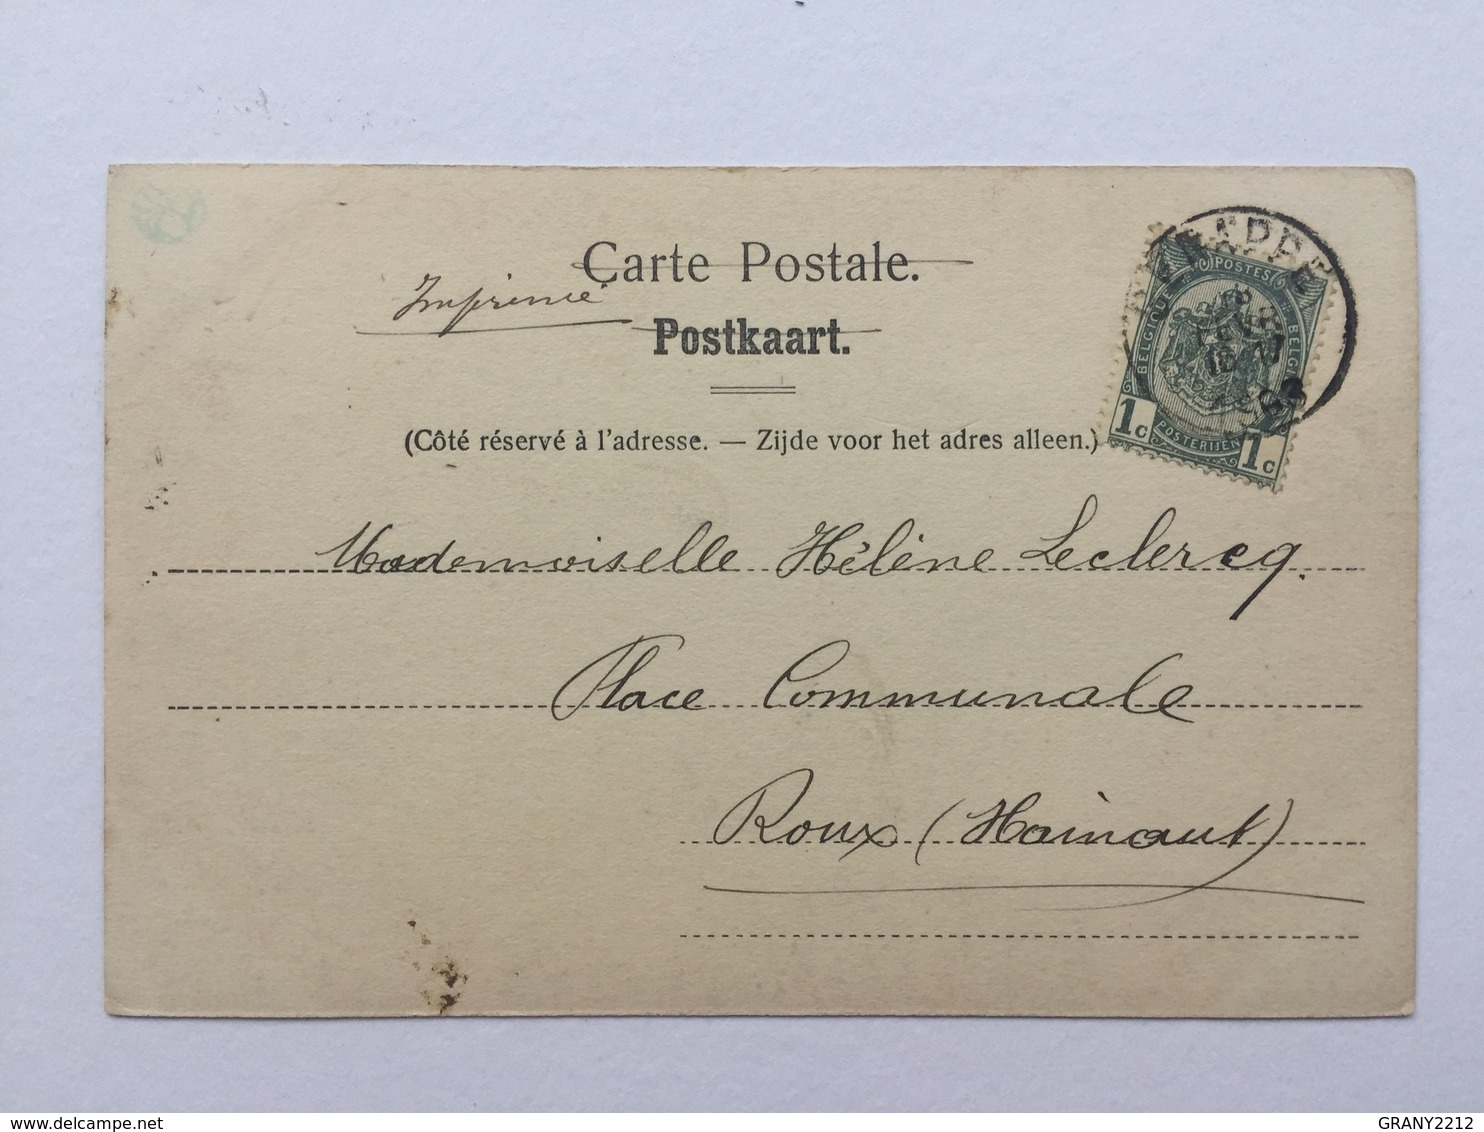 Carte Postale.
Imprimé
Postkaart.
(Côté réservé à l'adresse. — Zijde voor het adres alleen.)
POSTES
BELGIQUE
BELGIË
FEVR
1c
POSTERIJEN
1c
Mademoiselle Hélène Leclercq.
Place Communale
Roux (Hainaut)
delcampe.net
GRANY2212